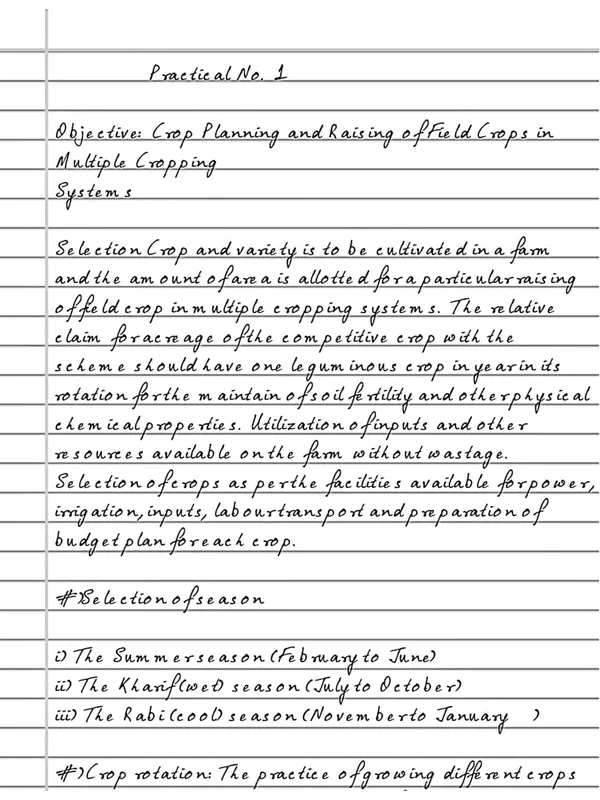 Practical No. 1
Objective: Crop Planning and Raising of Field Crops in
Multiple Cropping
Systems
Selection Crop and variety is to be cultivated in a farm
and the amount of area is allotted for a particular raising
of field crop in multiple cropping systems. The relative
claim for acreage of the competitive crop with the
scheme should have one leguminous crop in year in its
rotation for the maintain of soil fertility and other physical
chemical properties. Utilization of inputs and other
resources available on the farm without wastage.
Selection of crops as per the facilities available for power,
irrigation, inputs, labour transport and preparation of
budget plan for each crop.
#)Selection of season
i) The Summer season (February to June)
ii) The Kharif (wet) season (July to October)
iii) The Rabi (cool) season (November to January )
#) Crop rotation: The practice of growing different crops